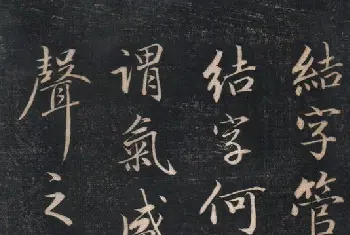 結字管
結字何
謂氣感
聲之